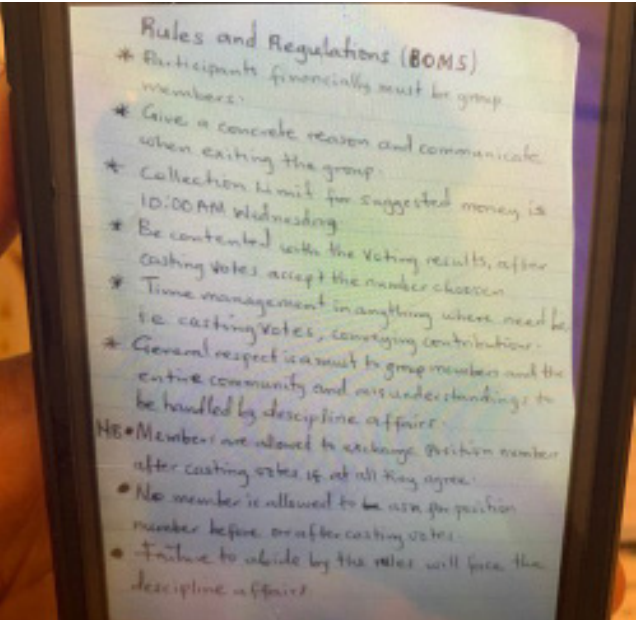 Rules and Regulations (BOMS)
* Participants financially must be group
members.
* Give a concrete reason and communicate
when exiting the group.
* Collection limit for suggested money is
10:00AM Wednesday
* Be contented with the voting results, after
casting votes accept the number choosen
* Time management in anything where need be,
i.e. casting votes, conveying contributions.
* General respect is a must to group members and the
entire community and misunderstandings to
be handled by descipline affairs.
NB • Members are allowed to exchange position number
after casting votes if at all they agree.
• No member is allowed to be ask for position
number before or after casting votes.
• Failure to abide by the rules will face the
descipline affairs